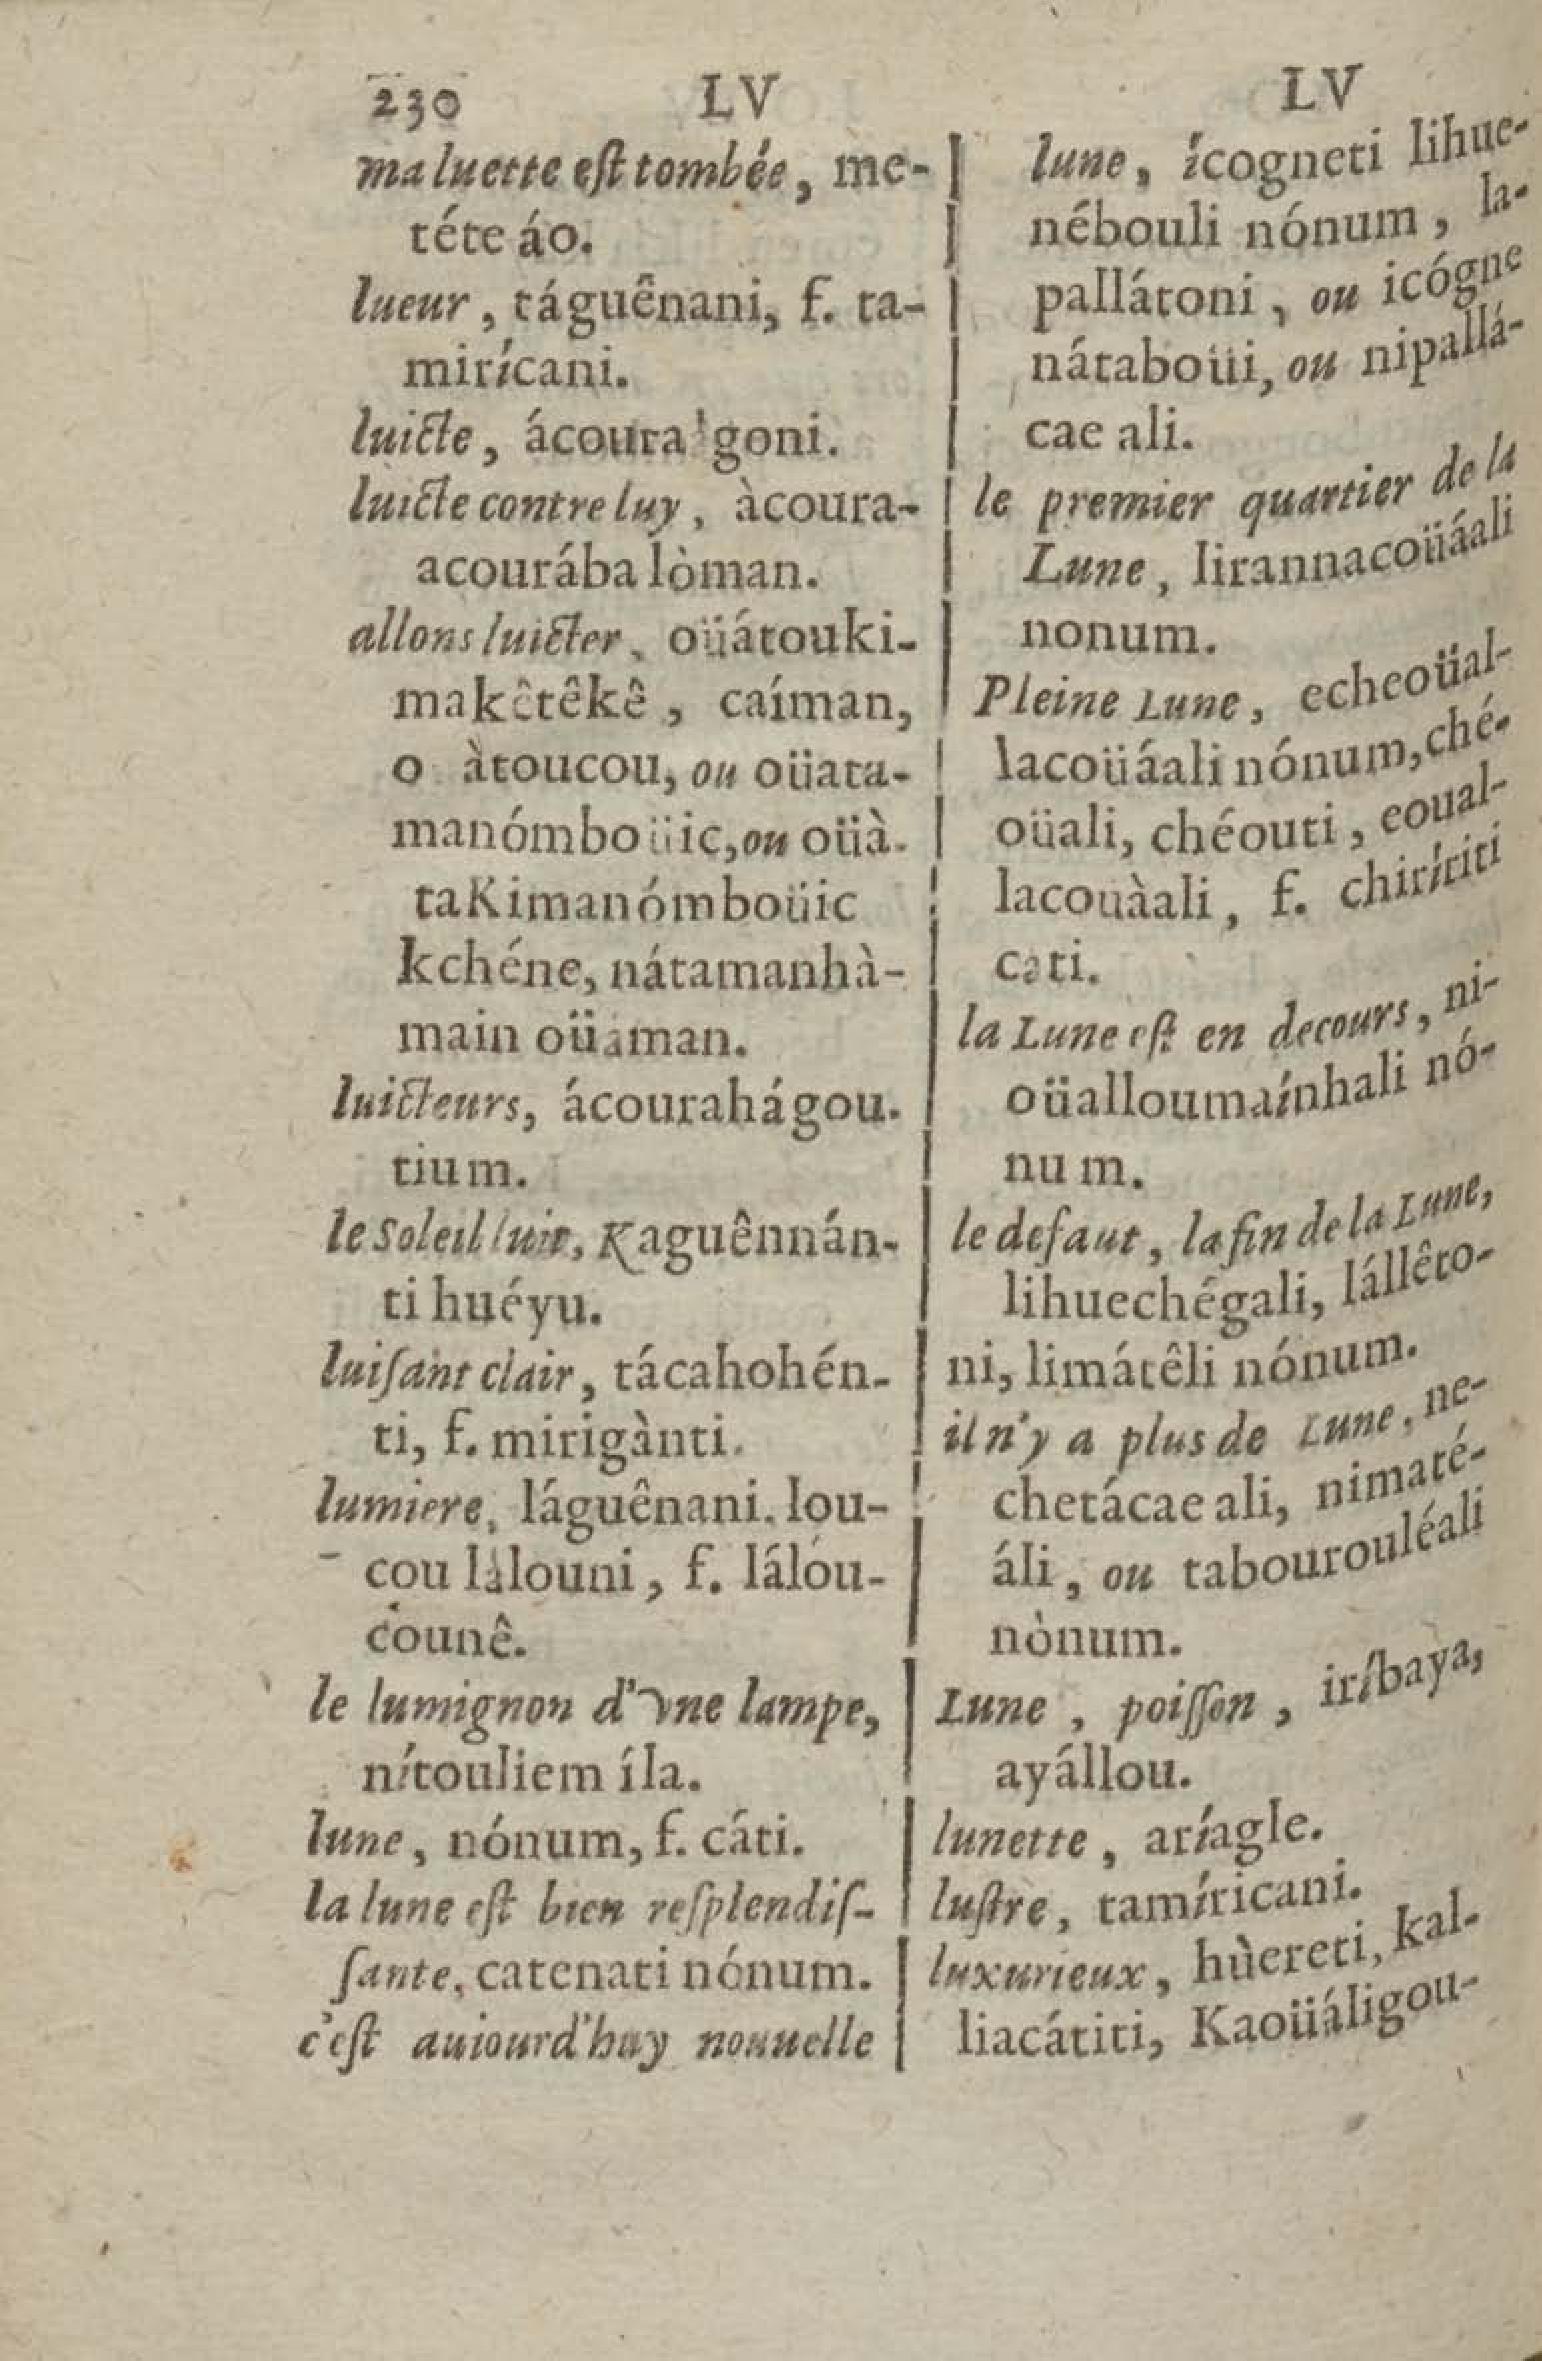 230 LV LV
ma luette eſt tombée, me-
téte áo.
lueur, táguênani, f. ta-
mirícani.
luicte, ácoura goni.
luicte contre luy, àcoura-
acourába lòman.
allons luicter, oüátouki-
makêtêkê, caíman,
o àtoucou, ou oüata-
manómboüic, ou oüà-
taKimanómboüic
kchéne, nátamanhà-
main oüáman.
luicteurs, ácourahágou.
tium.
le Soleil luit, Kaguênnán-
ti huéyu.
luiſant clair, tácahohén-
ti, f. mirigànti.
lumiere, láguênani. lou-
cou lálouni, f. lálóu-
counê.
le lumignon d'vne lampe,
nítouliem íla.
lune, nónum, f. cáti.
la lune eſt bien reſplendiſ-
ſante, catenati nónum.
c'eſt auiourd'huy nouuelle
lune, ícogneti lihue-
nébouli nónum, la-
pallátoni, ou icógne
nátaboüi, ou nipallá-
cae ali.
le premier quartier de la
Lune, lirannacoüáali
nonum.
Pleine Lune, echeoüal-
lacoüáali nónum, ché-
oüali, chéouti, eoual-
lacouàali, f. chirítiti
cati.
la Lune eſt en decours, ni-
oüalloumaínhali nó-
num.
le defaut, la fin de la Lune,
lihuechégali, lállêto-
ni, limátêli nónum.
il n'y a plus de Lune, ne-
chetácae ali, nimaté-
áli, ou tabourouléali
nònum.
Lune, poiſſon, iríbaya,
ayállou.
lunette, aríagle.
luſtre, tamíricani.
luxurieux, hùereti, kal-
liacátiti, Kaoüáligou-